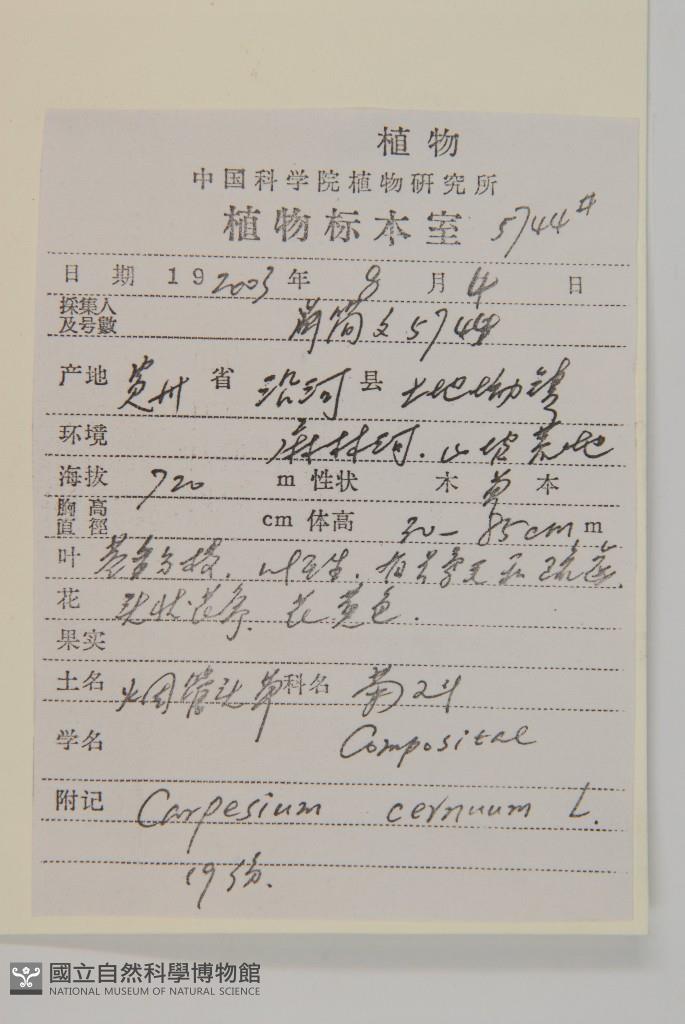 植物
中国科学院植物研究所
植物标本室 5744#
日 期 19 2003 年 8 月 4 日
採集人
及号數 简文 5744
产地 贵州 省 沿河 县 土地坳镇
环境 麻林河. 山坡荒地
海拔 720 m 性状 木 草 本
胸高
直徑 cm 体高 30-85cm m
叶 茎多分枝. 叶互生.
花 头状花序. 花黄色.
果实
土名 烟管头草 科名 菊科
学名 Compositae
附记 Carpesium cernuum L.
19份.
國立自然科學博物館
NATIONAL MUSEUM OF NATURAL SCIENCE